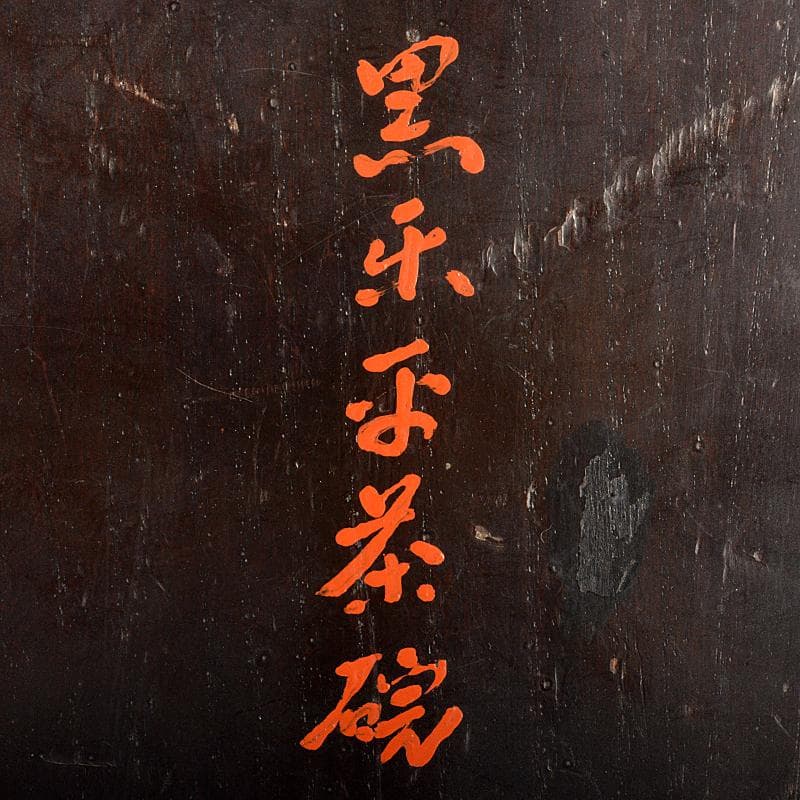 黒乐平茶碗